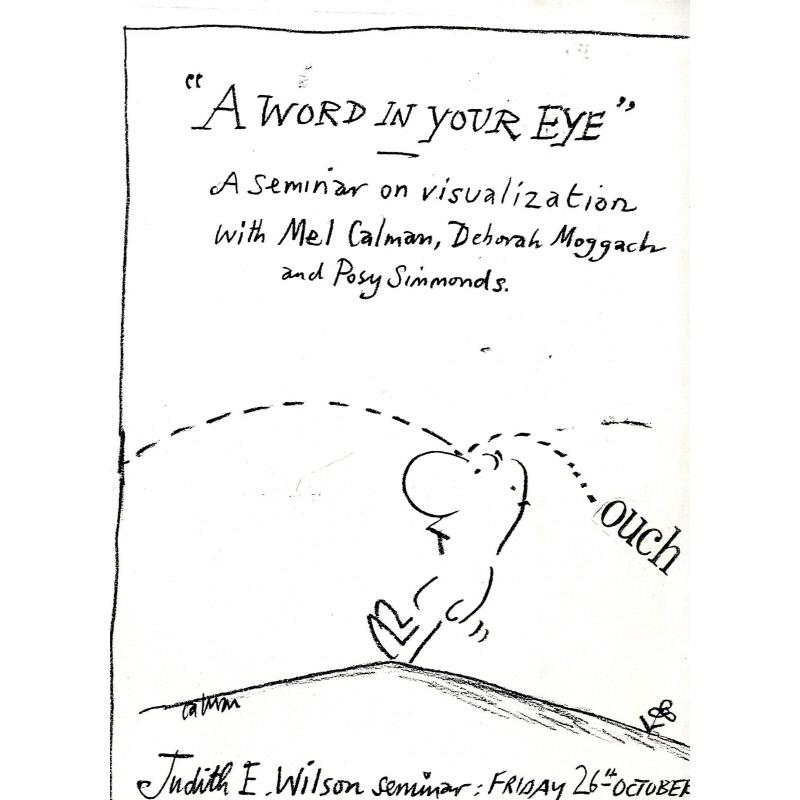 “A WORD IN YOUR EYE”
A seminar on visualization
with Mel Calman, Deborah Moggach
and Posy Simmonds.
ouch
calman
Judith E. Wilson seminar: FRIDAY 26th OCTOBER